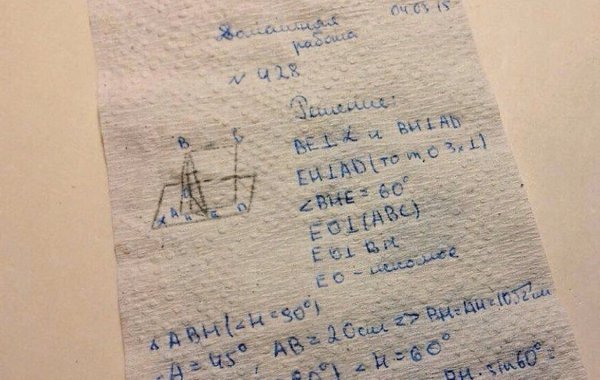 04.03.15
Домашняя
работа
№ 428
Решение:
BE⊥α и BH⊥AD
EH⊥AD (то т, о 3, ⊥)
∠BHE = 60°
EO⊥(ABC)
EO⊥BH
EO - искомое
B
α A H E D
△ABH (∠H=90°)
∠A = 45°, AB = 20см => BH=AH=10√2см
60°) ∠H = 60°
BH·sin60°=